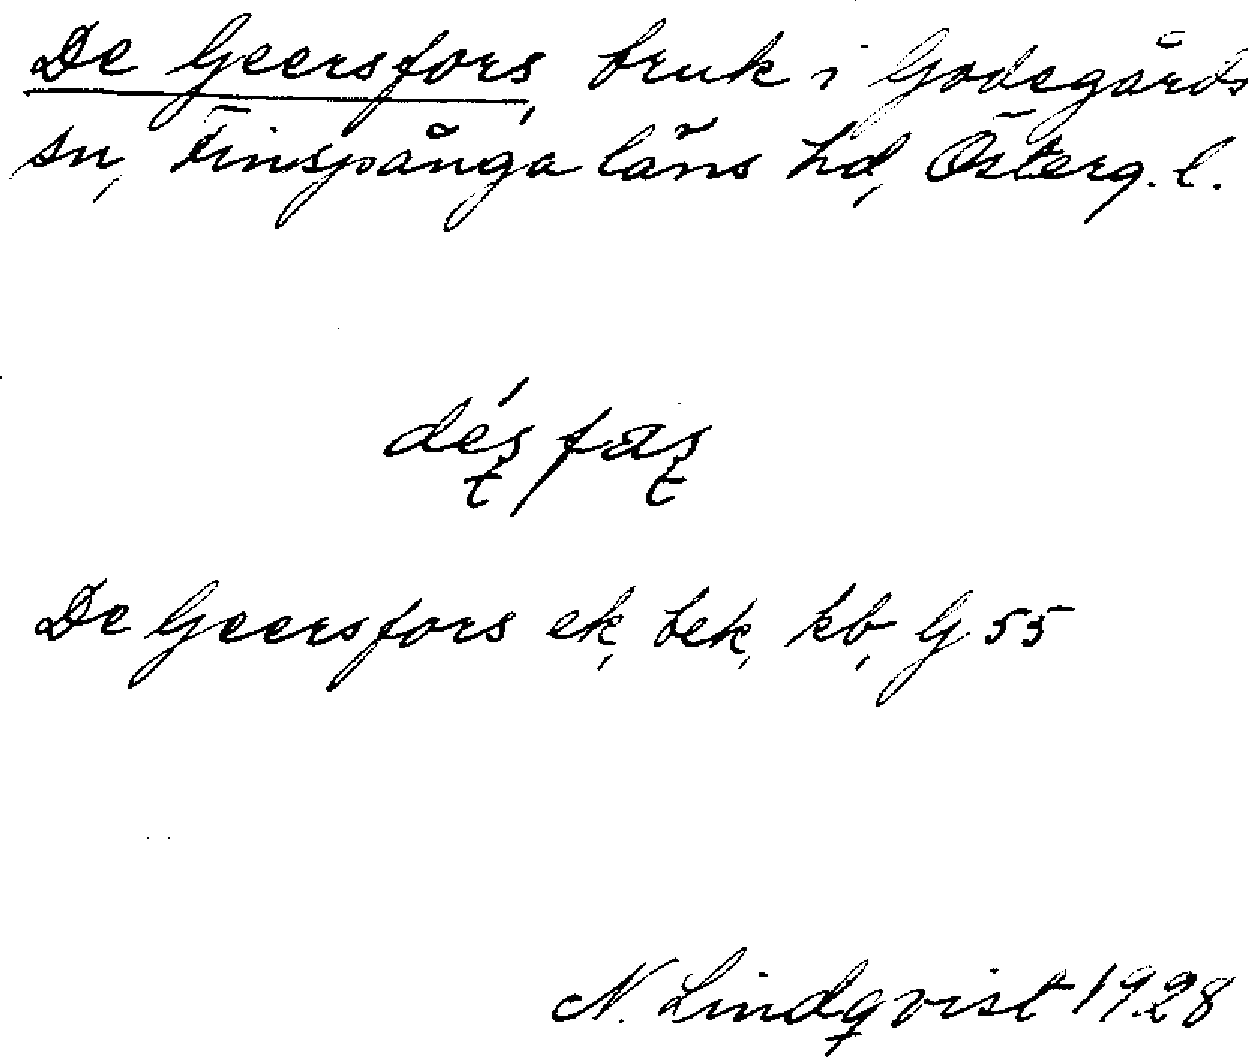 De Geersfors, bruk i Godegårds
sn, Finspånga läns hd, Österg. l.
De Geersfors ek, bek, kb, G 55
N. Lindqvist 1928